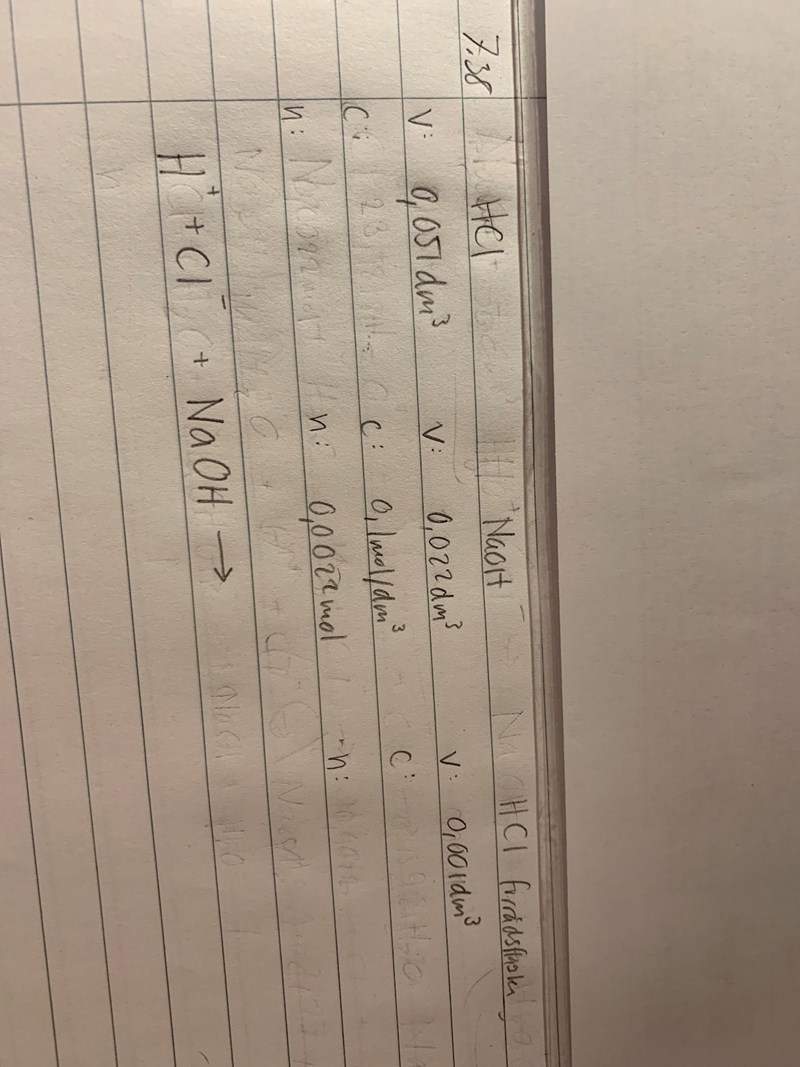 7.38 HCl NaOH HCl
V: 0,051dm³ V: 0,022dm³ V: 0,001dm³
C: C: 0,1mol/dm³ C:
n: n: 0,0022mol n:
H⁺ + Cl⁻ + NaOH →